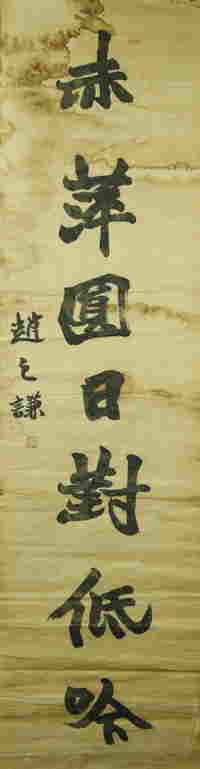 赤萍圓日對低吟
趙之謙